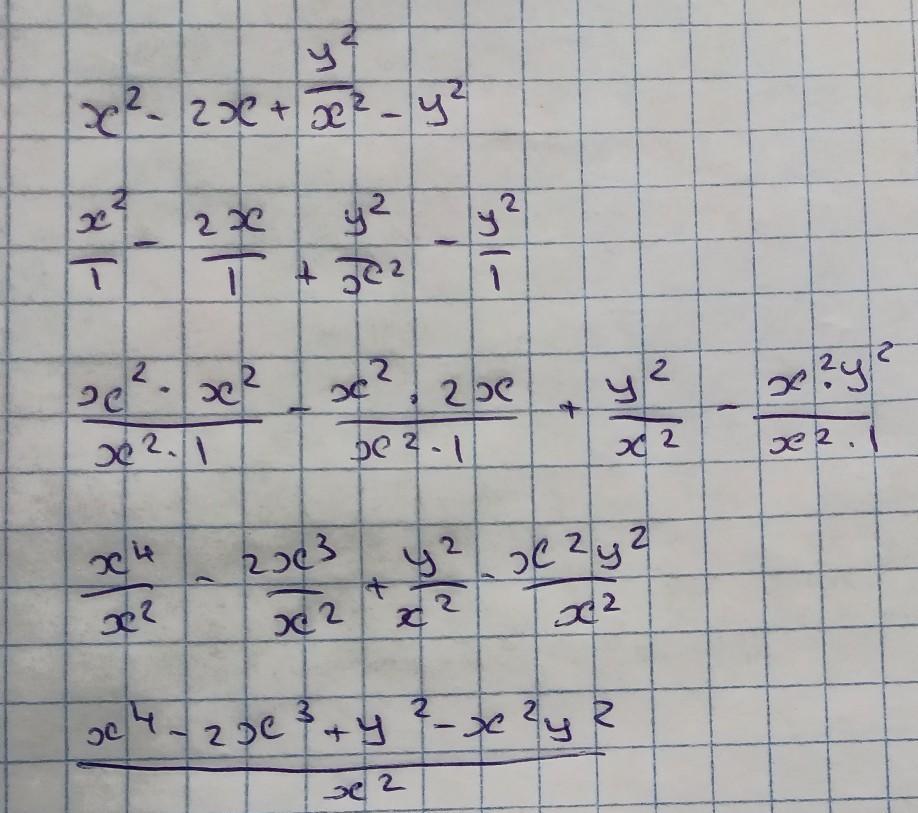 x² - 2x + y²/x² - y²
x²/1 - 2x/1 + y²/x² - y²/1
x² · x²/x² · 1 - x² · 2x/x² · 1 + y²/x² - x² · y²/x² · 1
x⁴/x² - 2x³/x² + y²/x² - x²y²/x²
x⁴ - 2x³ + y² - x²y²/x²